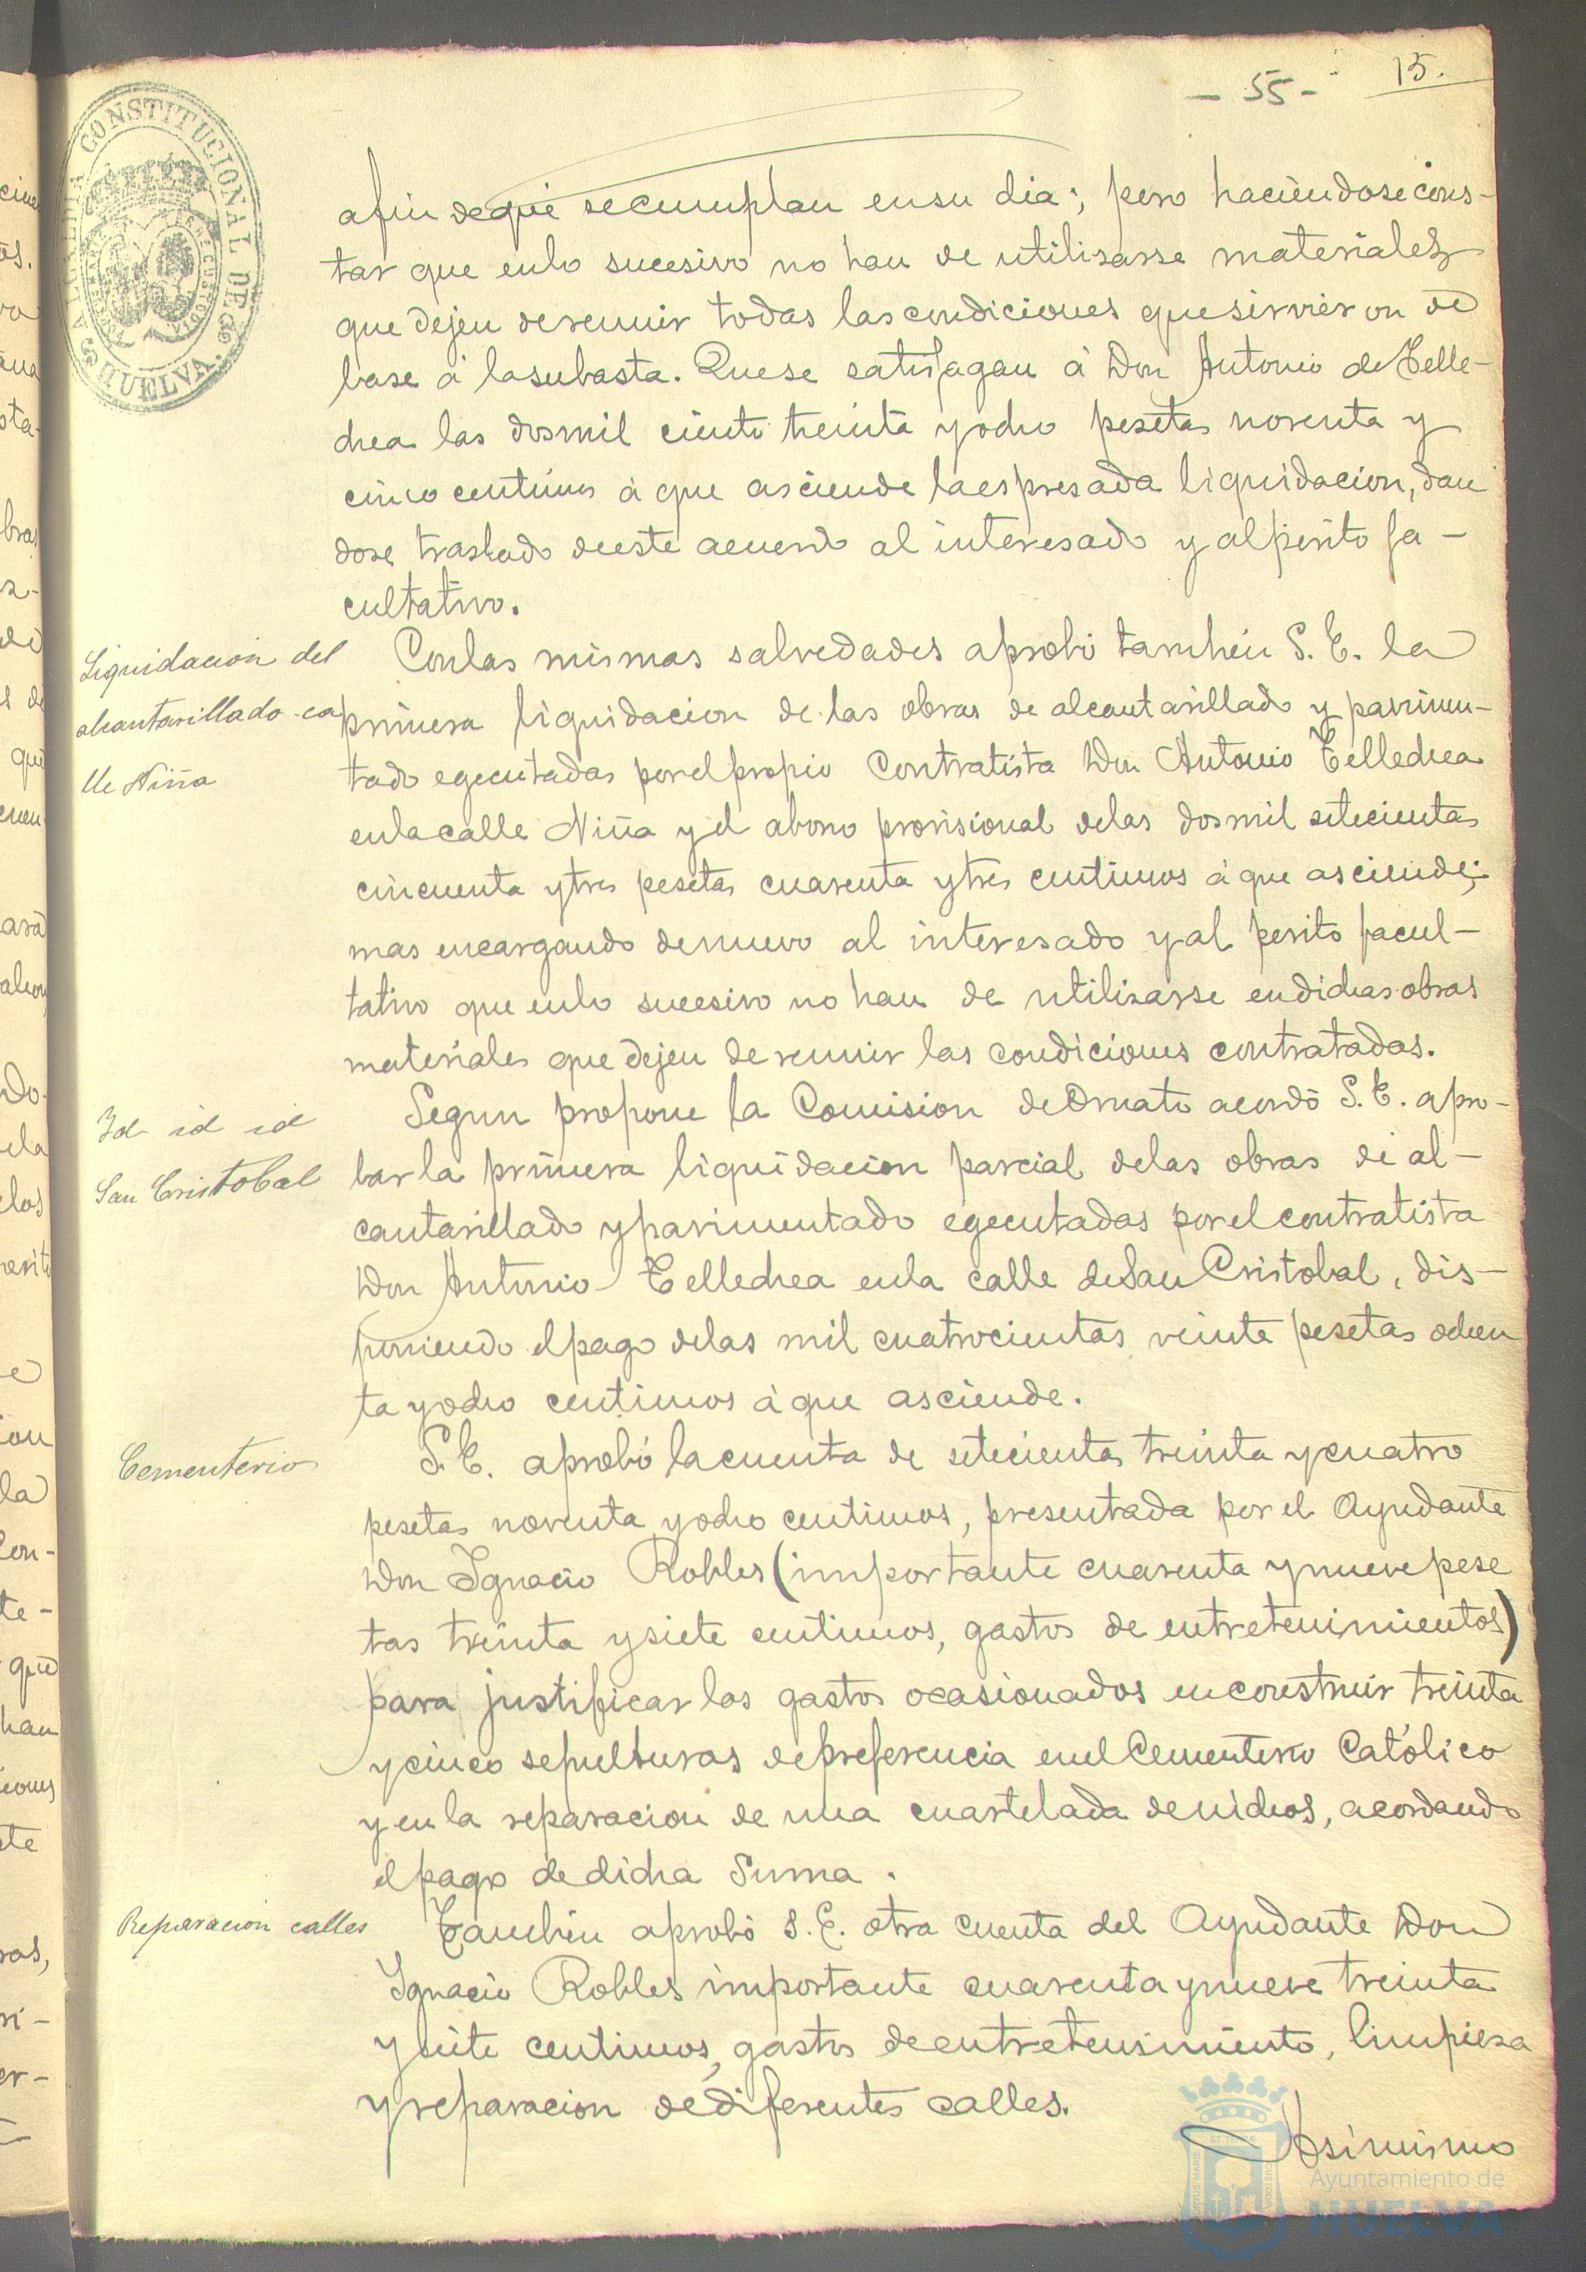 - 55 -
15.
ALCALDIA CONSTITUCIONAL DE HUELVA.
afin de que se cumplan en su dia; pero haciendose cons-
tar que en lo sucesivo no han de utilizarse materiales
que dejen de reunir todas las condiciones que sirvieron de
base á la subasta. Que se satisfagan á Don Antonio de Telle-
chea las dos mil ciento treinta y ocho pesetas noventa y
cinco centimos á que asciende la espresada liquidacion, dan
dose traslado de este acuerdo al interesado y al perito fa-
cultativo.
Liquidacion del
alcantarillado ca
lle Niña
Con las mismas salvedades aprobó tambien S. E. la
primera liquidacion de las obras de alcantarillado y pavimen-
tado egecutadas por el propio Contratista Don Antonio Tellechea
en la calle Niña y el abono provisional de las dos mil setecientas
cincuenta y tres pesetas cuarenta y tres centimos á que asciende;
mas encargando de nuevo al interesado y al perito facul-
tativo que en lo sucesivo no han de utilizarse en dichas obras
materiales que dejen de reunir las condiciones contratadas.
Id id id
San Cristobal
Segun propone la Comision de Ornato acordó S. E. apro-
bar la primera liquidacion parcial de las obras de al-
cantarillado y pavimentado egecutadas por el contratista
Don Antonio Tellechea en la calle de San Cristobal, dis-
poniendo el pago de las mil cuatrocientas veinte pesetas ochen
ta y ocho centimos á que asciende.
Cementerio
S. E. aprobó la cuenta de setecientas treinta y cuatro
pesetas noventa y ocho centimos, presentada por el Ayudante
Don Ignacio Robles (importante cuarenta y nueve pese
tas treinta y siete centimos, gastos de entretenimientos)
para justificar los gastos ocasionados en construir treinta
y cinco sepulturas de preferencia en el Cementerio Católico
y en la reparacion de una cuartelada de nichos, acordando
el pago de dicha suma.
Reparacion calles
Tambien aprobó S. E. otra cuenta del Ayudante Don
Ignacio Robles importante cuarenta y nueve treinta
y siete centimos, gastos de entretenimiento, limpieza
y reparacion de diferentes calles.
Asimismo
Ayuntamiento de
HUELVA